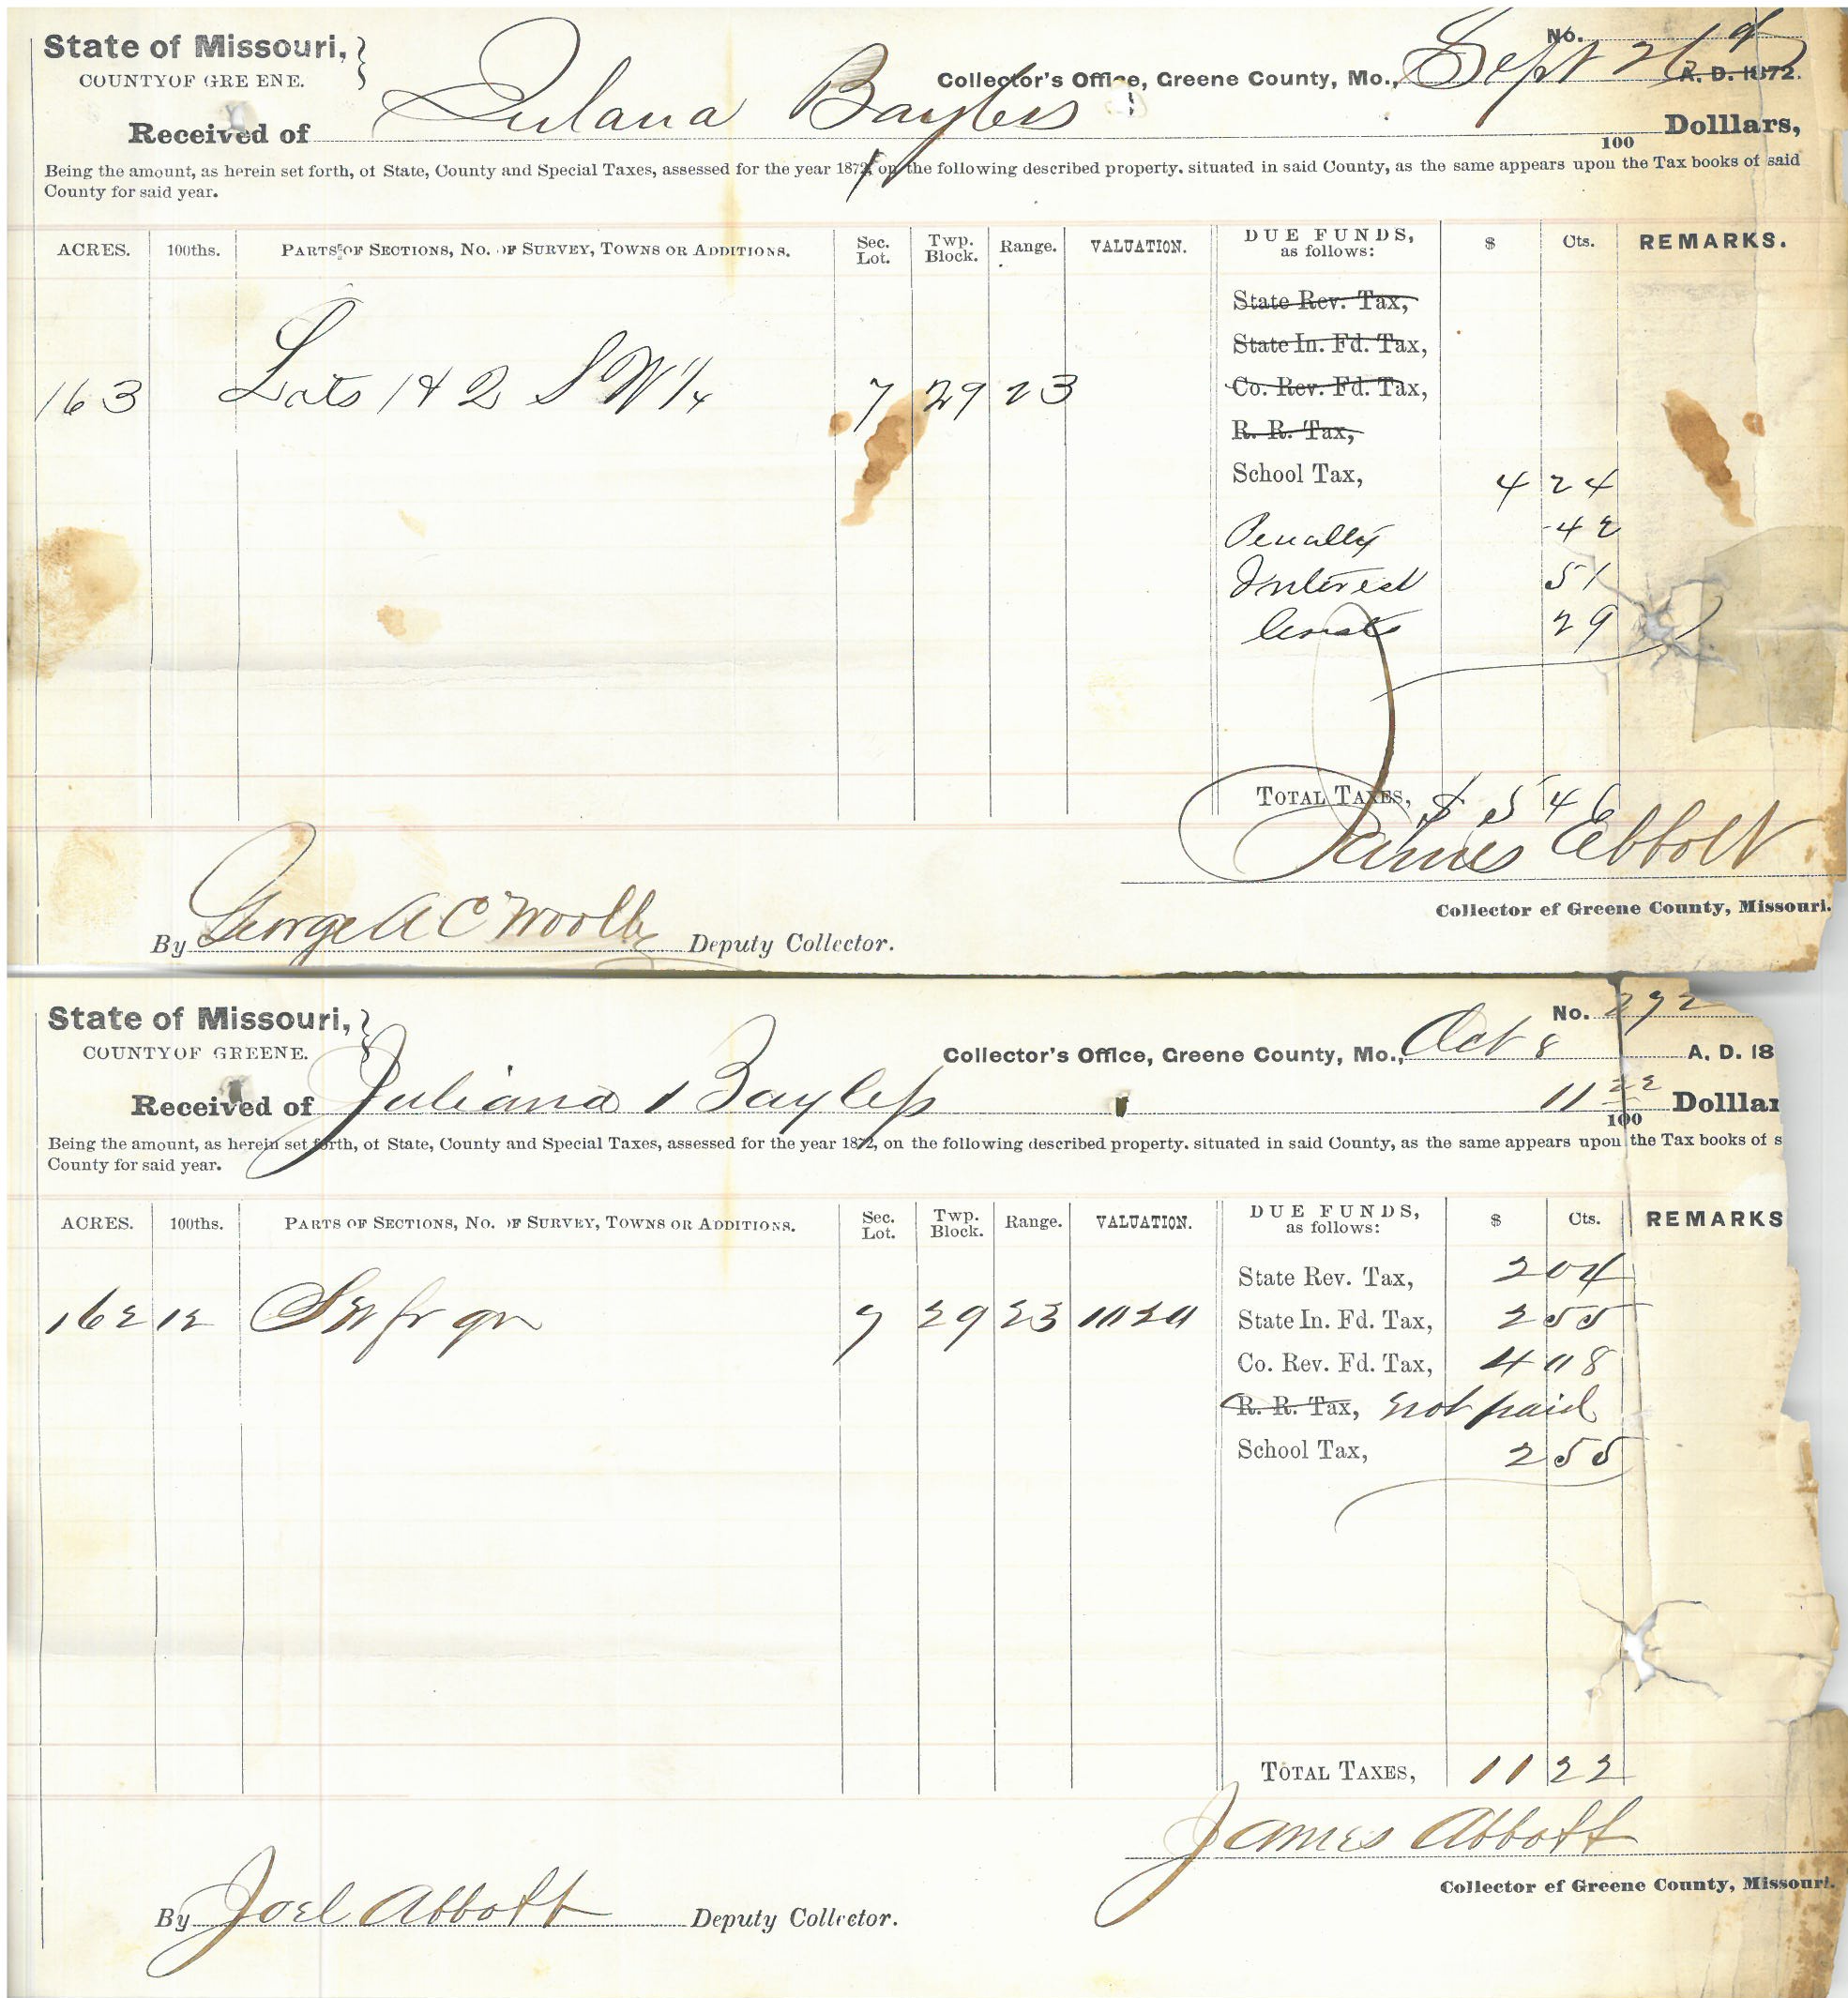 State of Missouri, }
COUNTY OF GREENE.
No.
Collector's Office, Greene County, Mo., Sept 26 A. D. 1872.
Received of Bayless 100 Dolllars,
Being the amount, as herein set forth, of State, County and Special Taxes, assessed for the year 1871, on the following described property. situated in said County, as the same appears upon the Tax books of said
County for said year.
ACRES. 100ths. PARTS OF SECTIONS, NO. OF SURVEY, TOWNS OR ADDITIONS. Sec. Lot. Twp. Block. Range. VALUATION. DUE FUNDS, as follows: $ Cts. REMARKS.
State Rev. Tax,
State In. Fd. Tax,
163 Lots 1 & 2 S W 1/4 7 29 23 Co. Rev. Fd. Tax,
R. R. Tax,
School Tax, 4 24
Penalty 42
Interest 51
Costs 29
TOTAL TAXES, $ 5 46
James Abbott
Collector ef Greene County, Missouri.
By George A C Woolley Deputy Collector.
State of Missouri, }
COUNTY OF GREENE.
No. 292
Collector's Office, Greene County, Mo., Oct 8 A. D. 18
Received of Juliana Bayless 11 22/100 Dolllar
Being the amount, as herein set forth, of State, County and Special Taxes, assessed for the year 1872, on the following described property. situated in said County, as the same appears upon the Tax books of s
County for said year.
ACRES. 100ths. PARTS OF SECTIONS, NO. OF SURVEY, TOWNS OR ADDITIONS. Sec. Lot. Twp. Block. Range. VALUATION. DUE FUNDS, as follows: $ Cts. REMARKS
State Rev. Tax, 2 04
162 12 SW fr qr 7 29 23 1020 State In. Fd. Tax, 2 55
Co. Rev. Fd. Tax, 4 08
R. R. Tax, not paid
School Tax, 2 55
TOTAL TAXES, 11 22
James Abbott
Collector ef Greene County, Missouri.
By Joel Abbott Deputy Collector.